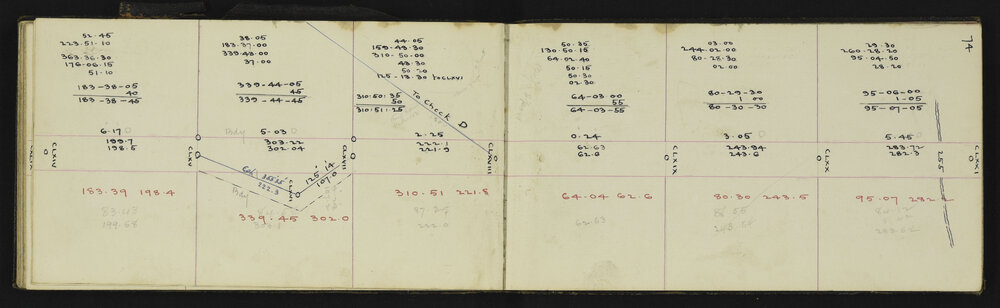 52.45
223.51.10
363.36.30
176.06.15
51.10
183-38-05
40
183-38-45
6.17
199.7
198.5
CLXIV
183.39 198.4
83.43
199.68
38.05
183.37.00
339.43.00
37.00
339-44-05
45
339-44-45
Bdy 5.03
303.22
302.04
CLXV
222.3
CLXVI
125.14
107.0
Bdy
339.45 302.0
44.05
159.43.30
310.50.00
43.30
50.20
125.13.30 to CLXVI
310.50.35
50
310.51.25
To Check D
2.25
222.1
221.9
CLXVII
CLXVIII
310.51 221.8
97.24
222.0
50.35
130.50.10
64.02.40
50.15
50.30
02.30
64-03-00
55
64-03-55
0.24
62.63
62.6
CLXIX
64.04 62.6
62.63
03.00
244.02.00
80.28.30
02.00
80-29-30
1 00
80-30-30
3.05
243.94
243.6
CLXX
80.30 243.5
55
243.54
74
29.30
260.28.20
95.04.50
28.20
95-06-00
1-05
95-07-05
5.45
283.72
282.3
255
CLXXI
95.07 282.2
283.62